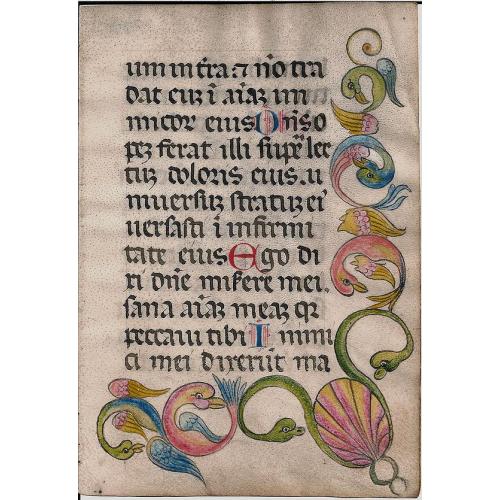 um in t̄ra ⁊ nō tra
dat eūz ī aīaz im
micor eius Dn̄s o
pez ferat illi supeꝛ lec
tuz doloris eius. u
niuersuz stratuz ei
uersasti ī infirmi
tate eius Ego di
xi dn̄e misere mei.
sana aīaz meaz qꝛ
peccaui tibi I nimi
ci mei dixerūt ma